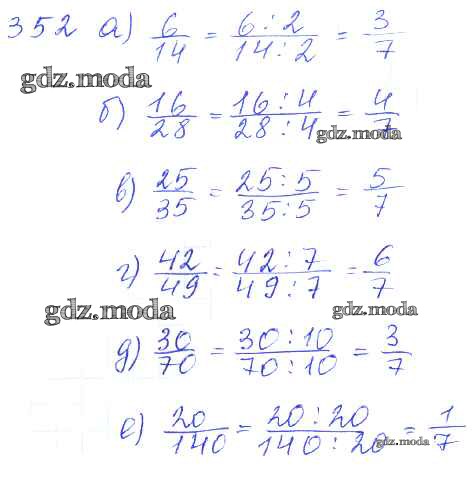 352 а) 6/14 = 6:2/14:2 = 3/7
gdz.moda
б) 16/28 = 16:4/28:4 = 4/7
gdz.moda
в) 25/35 = 25:5/35:5 = 5/7
г) 42/49 = 42:7/49:7 = 6/7
gdz.moda
gdz.moda
д) 30/70 = 30:10/70:10 = 3/7
е) 20/140 = 20:20/140:20 = 1/7
gdz.moda